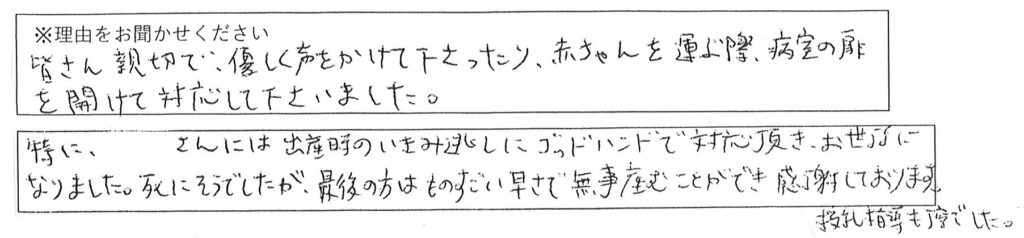 ※理由をお聞かせください
皆さん親切で、優しく声をかけて下さったり、赤ちゃんを運ぶ際、病室の扉
を開けて対応して下さいました。
特に、 さんには出産時のいきみ逃しにゴッドハンドで対応頂き、お世話に
なりました。死にそうでしたが、最後の方はものすごい早さで無事産むことができ感謝しております。
授乳指導も丁寧でした。